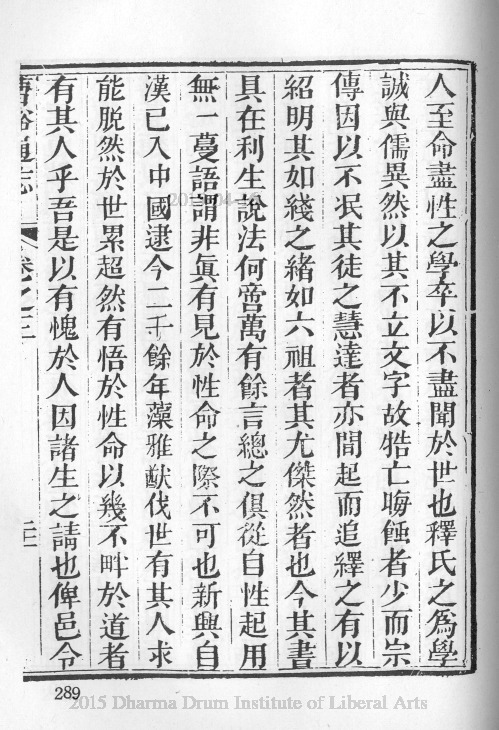 人至命盡性之學卒以不盡聞於世也釋氏之為學
誠與儒異然以其不立文字故牿亡晦蝕者少而宗
傳因以不泯其徒之慧達者亦間起而追繹之有以
紹明其如綫之緒如六祖者其尤傑然者也今其書
具在利生說法何啻萬有餘言總之俱從自性起用
無一蔓語謂非眞有見於性命之際不可也新興自
漢已入中國逮今二千餘年藻雅猷伐世有其人求
能脫然於世累超然有悟於性命以幾不畔於道者
有其人乎吾是以有愧於人因諸生之請也俾邑令
卷之三
二
289
2015 Dharma Drum Institute of Liberal Arts